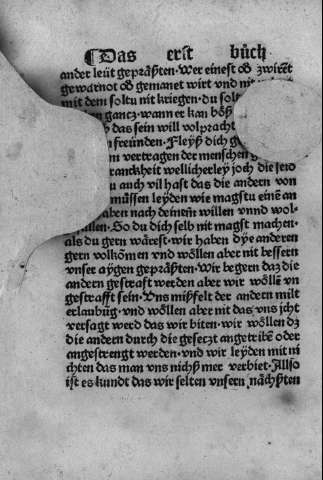 Das erst büch
ander leüt geprästen. Wer einest oď zwirēt
gewarnot oď gemanet wirt vnd ni
mit dem soltu nit kriegen. du sol
gancz. wann er kan böß
das sein will volpracht
freünden. Fleyß dich g
vertragen der menschen
ranckheit wellicherley joch die seio
u auch vil hast das die andern von
müssen leyden wie magstu einē an
aben nach deinem willen vnnd wol-
en. So du dich selb nit magst machen.
als du gern wärest. wir haben dye anderen
gern volkōmen vnd wöllen aber nit bessern
vnser aygen geprästen. Wir begern daz die
andern gestraft werden aber wir wöllē vn
gestrafft sein. Vns mißfelt der andern milt
erlaubūg. vnd wöllen aber nit das vns icht
versagt werd das wir biten. wir wöllen dz
die andern durch die geseczt angetribē oder
angestrengt werden. vnd wir leyden mit ni
chten das man vns nichß mer verbiet. Allso
ist es kundt das wir selten vnsern nächsten